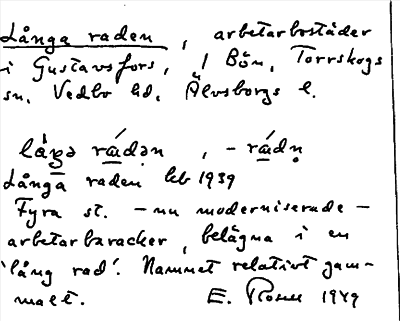 Långa raden, arbetarbostäder
i Gustavsfors, / Bön, Torrskogs
sn, Vedbo hd, Älvsborgs l.
låŋa rádən, -rádṇ
Långa raden hb 1939
Fyra st. - nu moderniserade -
arbetarbaracker, belägna i en
'lång rad'. Namnet relativt gam-
malt. E. Rosell 1949